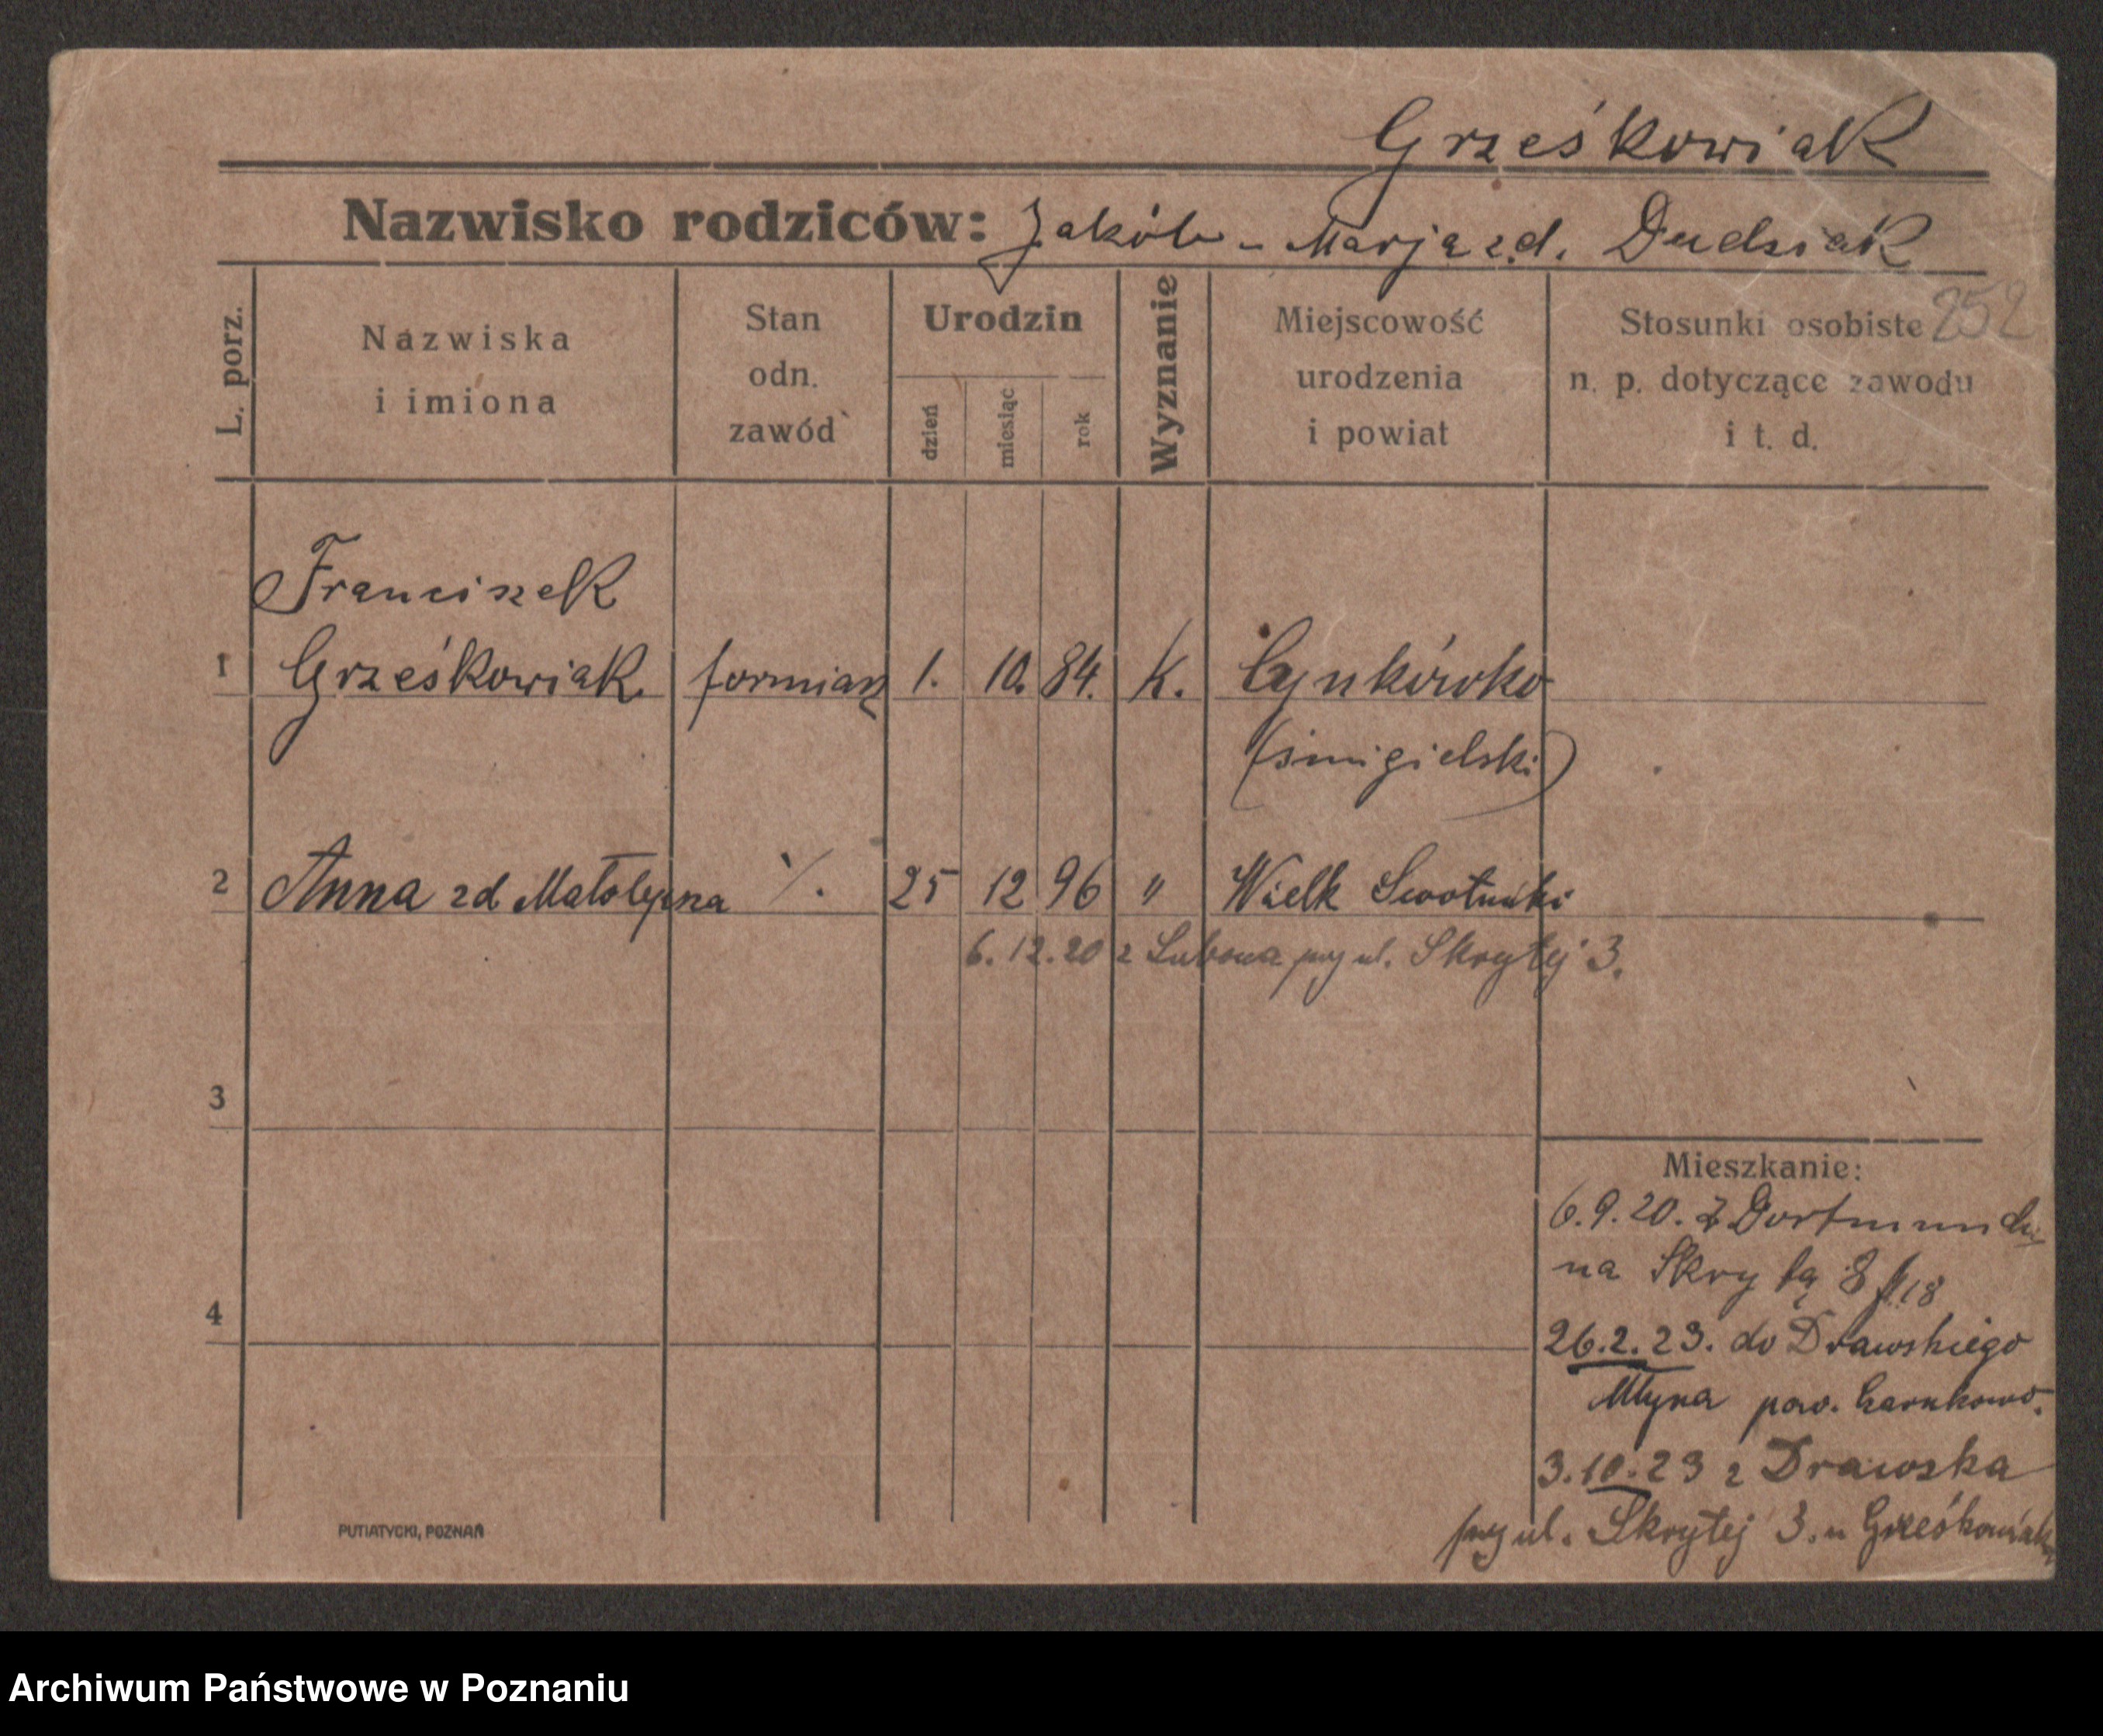 Grześkowiak
Nazwisko rodziców: Jakób - Marja zd. Dudziak
252
L. porz.
Nazwiska
i imiona
Stan
odn.
zawód
Urodzin
dzień
miesiąc
rok
Wyznanie
Miejscowość
urodzenia
i powiat
Stosunki osobiste
n. p. dotyczące zawodu
i t. d.
Franciszek
1 Grześkowiak formiarz 1. 10. 84. K.
(śmigielski)
2 Anna zd Matolyczna ·/. 25 12 96 " Wielk
6.12.20 z Lubonia przy ul. Skrytej 3.
3
4
Mieszkanie:
6.9.20. z Dortmundu
na Skrytą 8
26.2.23. do Drawskiego
Młyna pow. Czarnkowo.
3.10.23 z Drawska
przy ul. Skrytej 3. u Grześkowiak
PUTIATYCKI, POZNAŃ
Archiwum Państwowe w Poznaniu